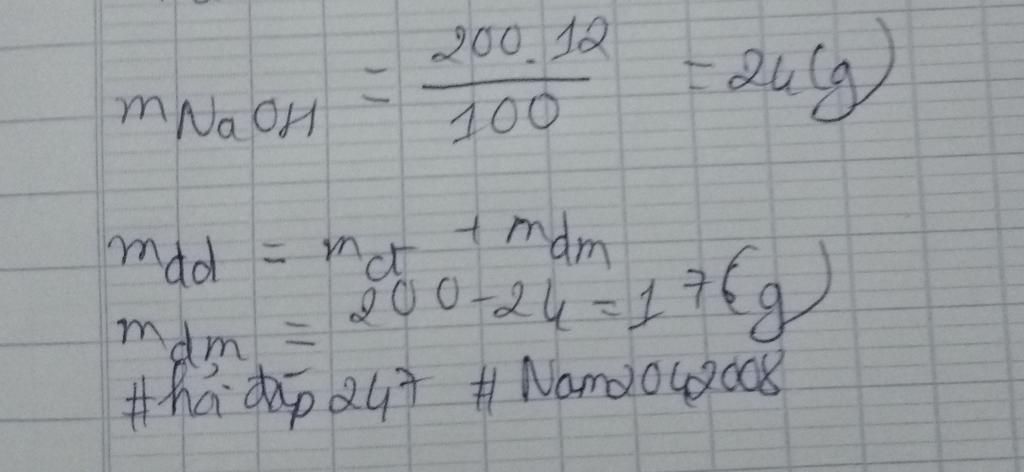 m NaOH = 200.12 / 100 = 24(g)
mdd = mct + mdm
mdm = 200-24=176(g)
#hỏi đáp 247 #Nam2042008